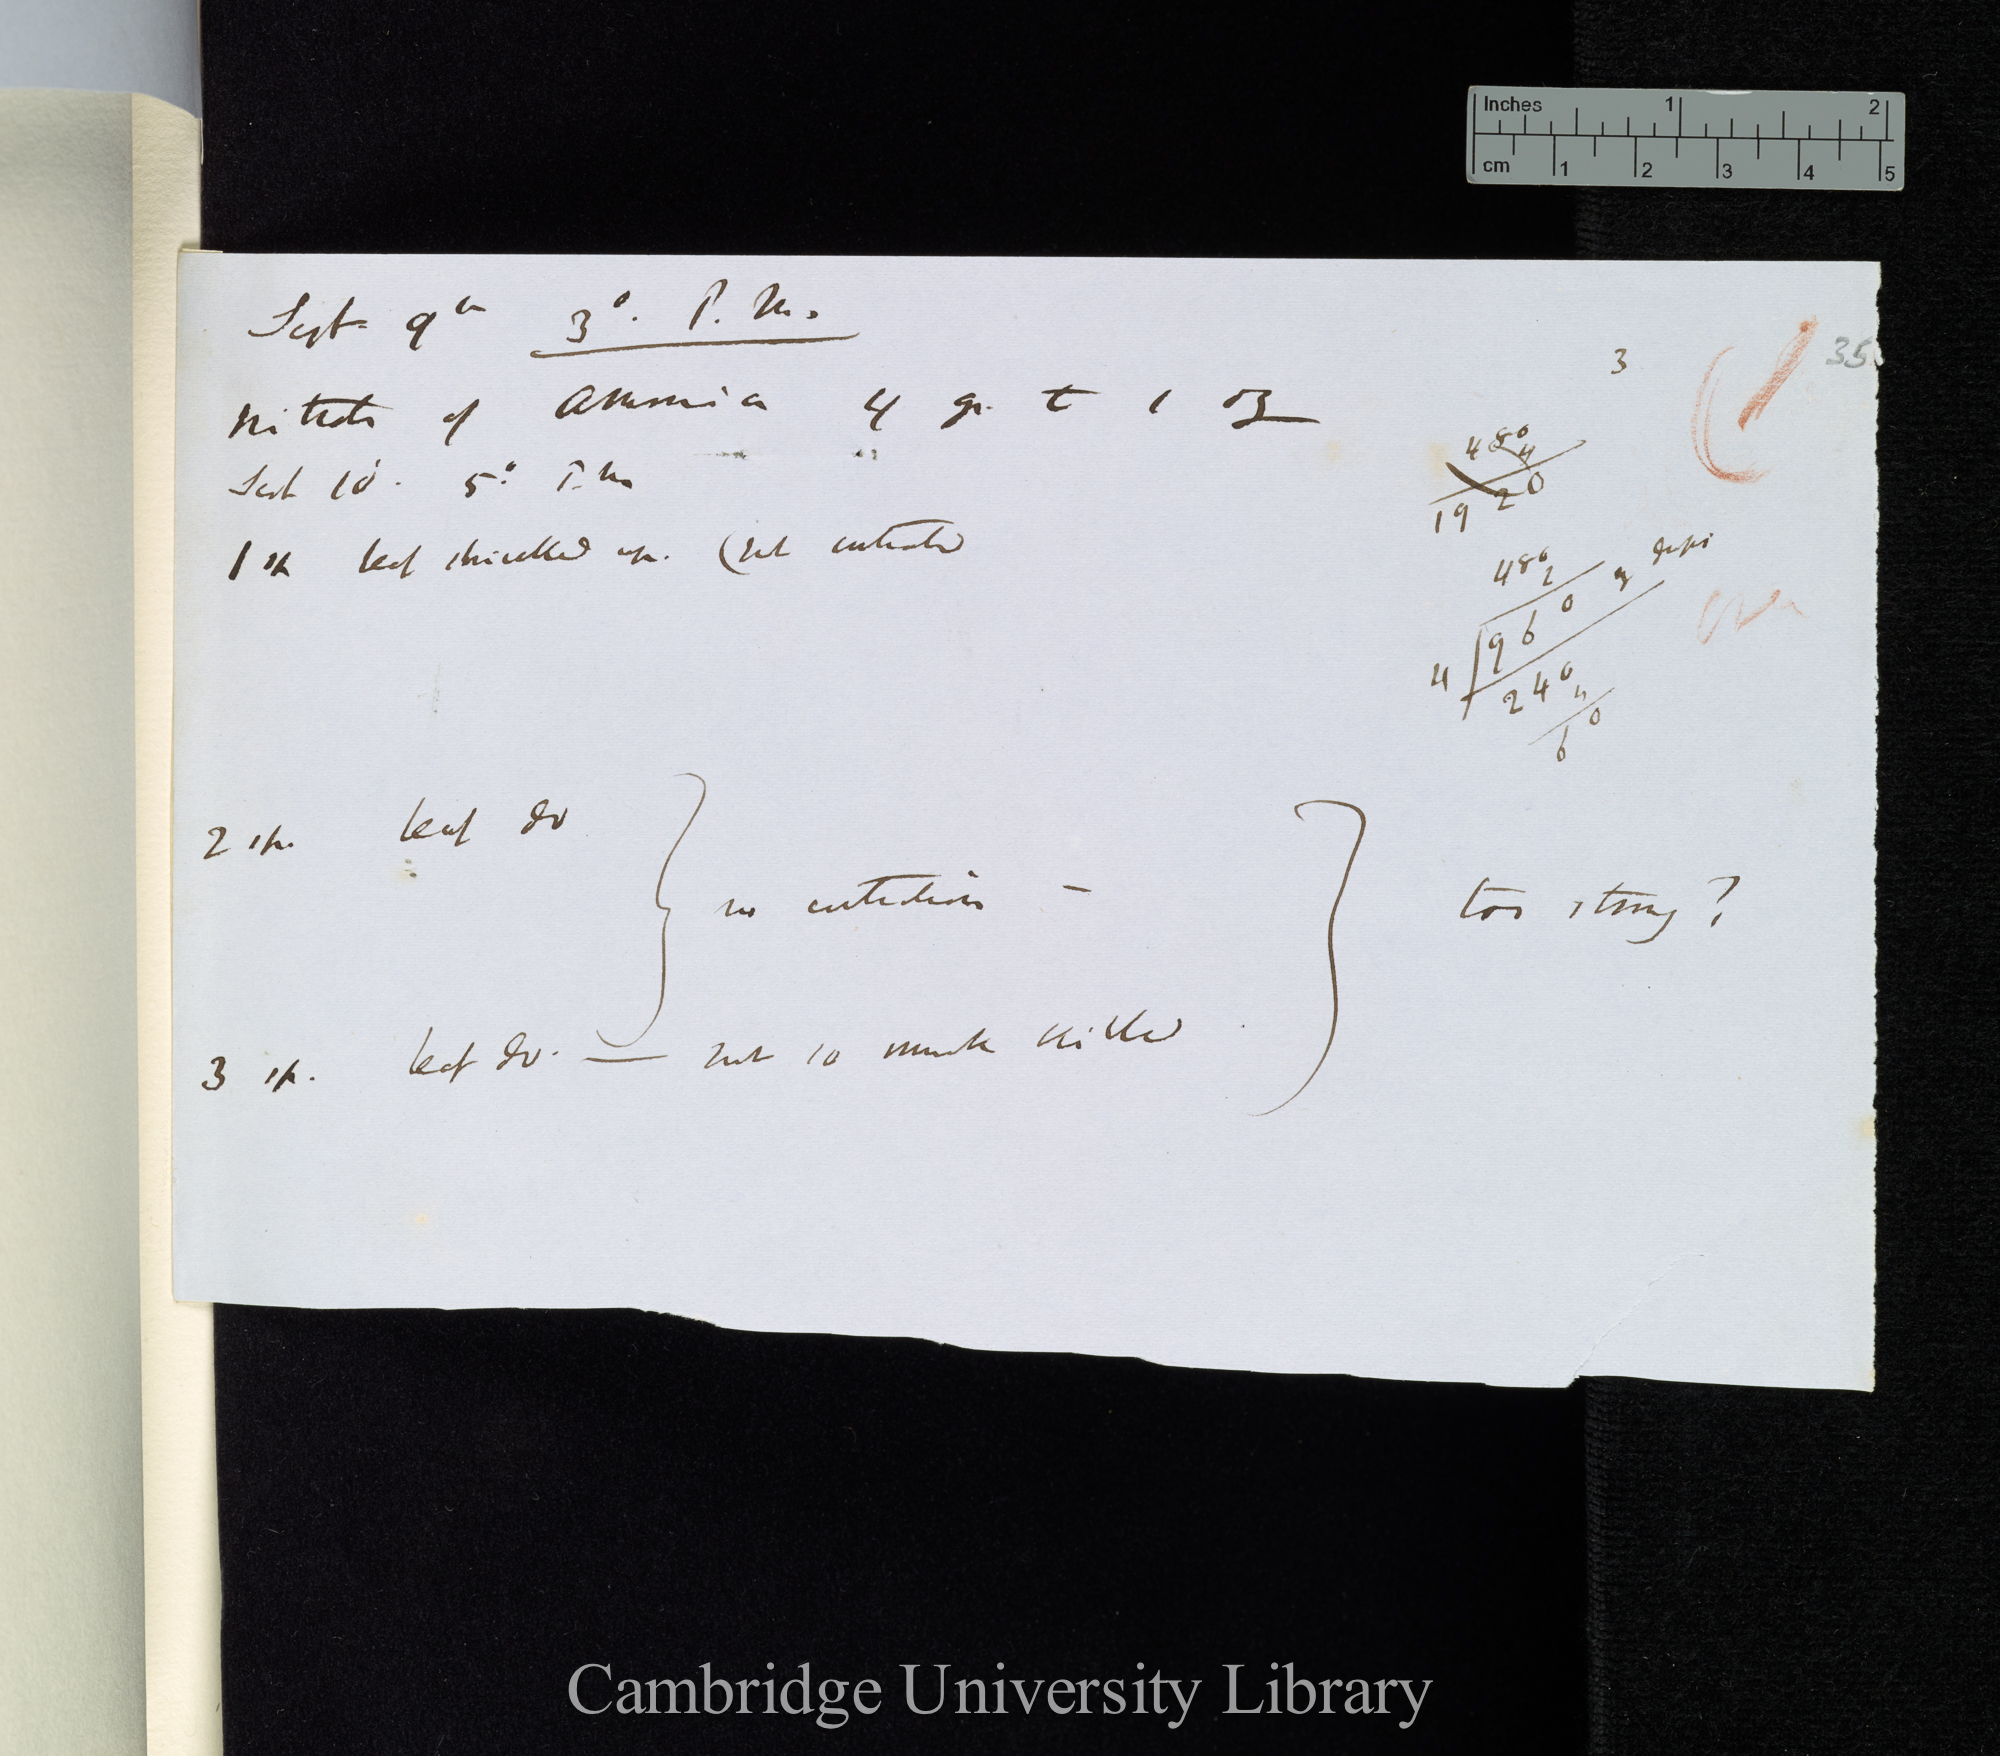 Inches 1 2
cm 1 2 3 4 5
Sept 9th 3°. P.M.
35
3
Nitrate of Ammonia 4 gr. to 1 oz
480
4
1920
Sept 10. 5° P.M
1 sp leaf shrivelled up. (not contracted
480
2
960
4
240
4
60
over
2 sp. leaf do
no contraction –
too strong?
3 sp. leaf do. — not so much killed
Cambridge University Library